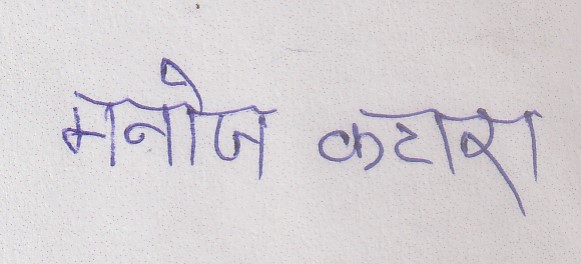 मनोज कटारा